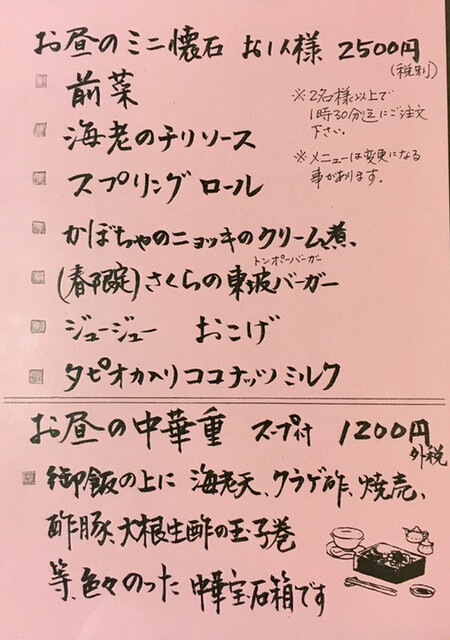 お昼のミニ懐石 お1人様 2500円
(税別)
前菜
※2名様以上で
1時30分迄にご注文
下さい。
海老のチリソース
※メニューは変更になる
事があります。
スプリングロール
かぼちゃのニョッキのクリーム煮、
トンポーバーガー
(春限定)さくらの東坡バーガー
ジュージュー おこげ
タピオカ入りココナッツミルク
お昼の中華重 スープ付 1200円
外税
御飯の上に 海老天、クラゲ酢、焼売、
酢豚、大根生酢の玉子巻
等、色々のった 中華宝石箱です